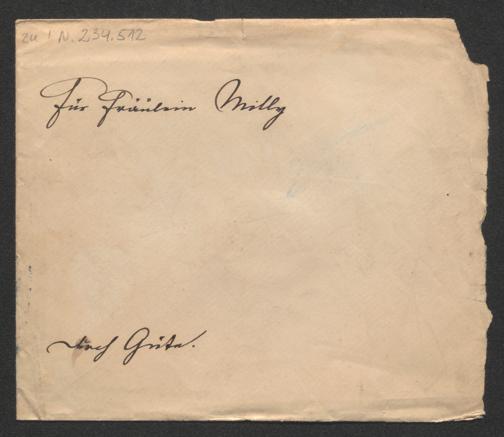 zu I.N. 234.512
Für Fräulein Milly
durch Güte.